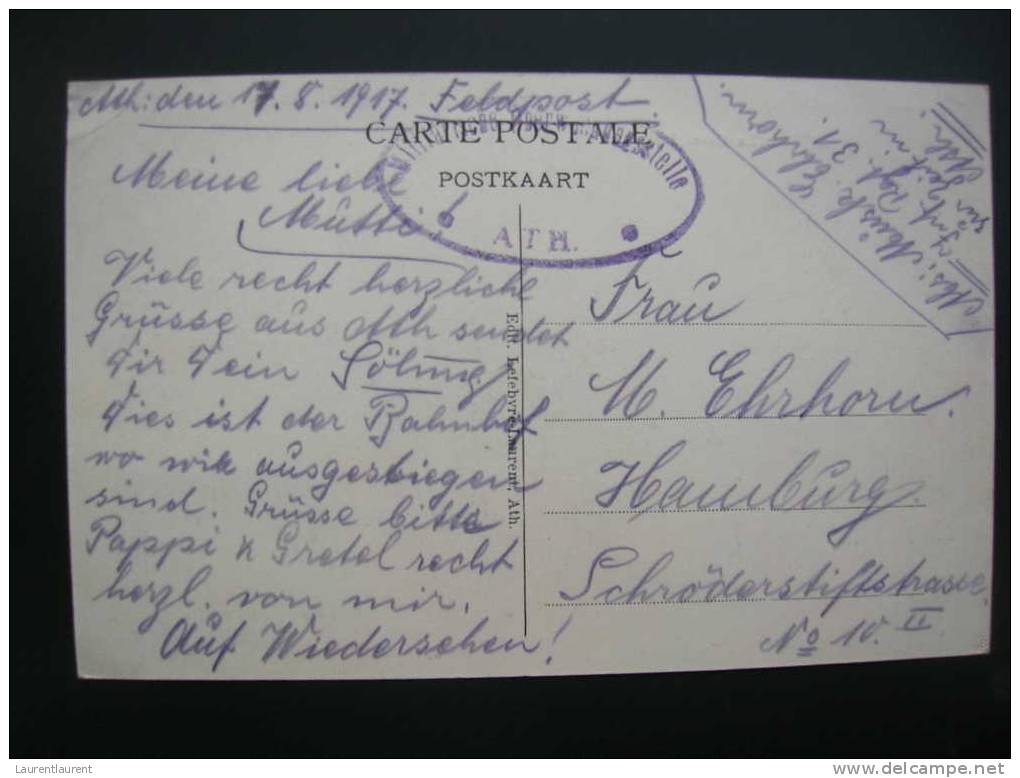 Ath: den 17.8.1917. Feldpost.
CARTE POSTALE
POSTKAART
ATH.
Meine liebe
Mutti!
Viele recht herzliche
Grüsse aus Ath sendet
Dir Dein
Dies ist der Bahnhof
wo wir ausgestiegen
sind. Grüsse bitte
Pappi & Gretel recht
herzl. von mir.
Auf Wiedersehen!
Edit. Lefebvre-Laurent, Ath.
Abs: Musk. Ehrhorn
Inf. Rgt. 31.
zur Zeit in
Ath.
Frau
M. Ehrhorn.
Hamburg.
Schröderstiftstrasse
No 10. II
Laurentlaurent
www.delcampe.net